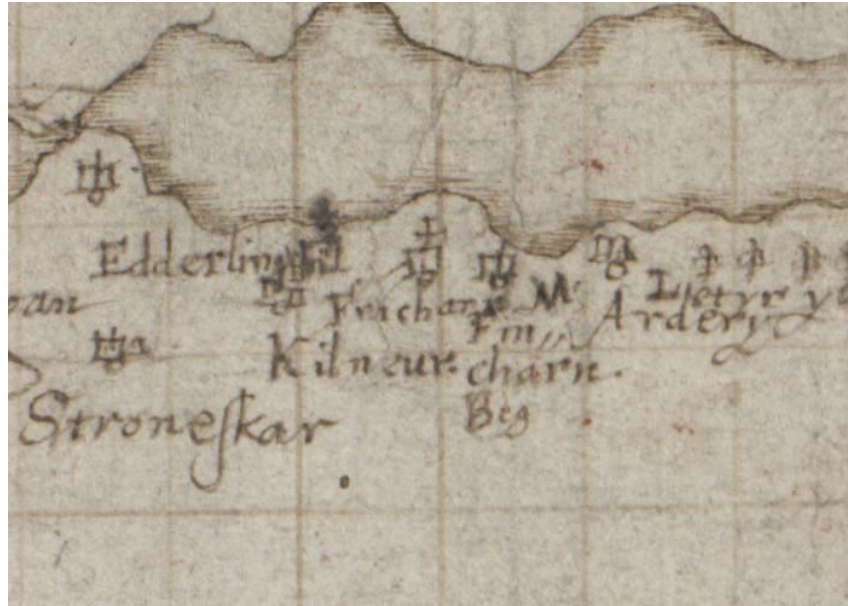 Edderling
Fincharn M
Ardery
Fin,,
charn.
Beg
Kilneur.
Stroneſkar